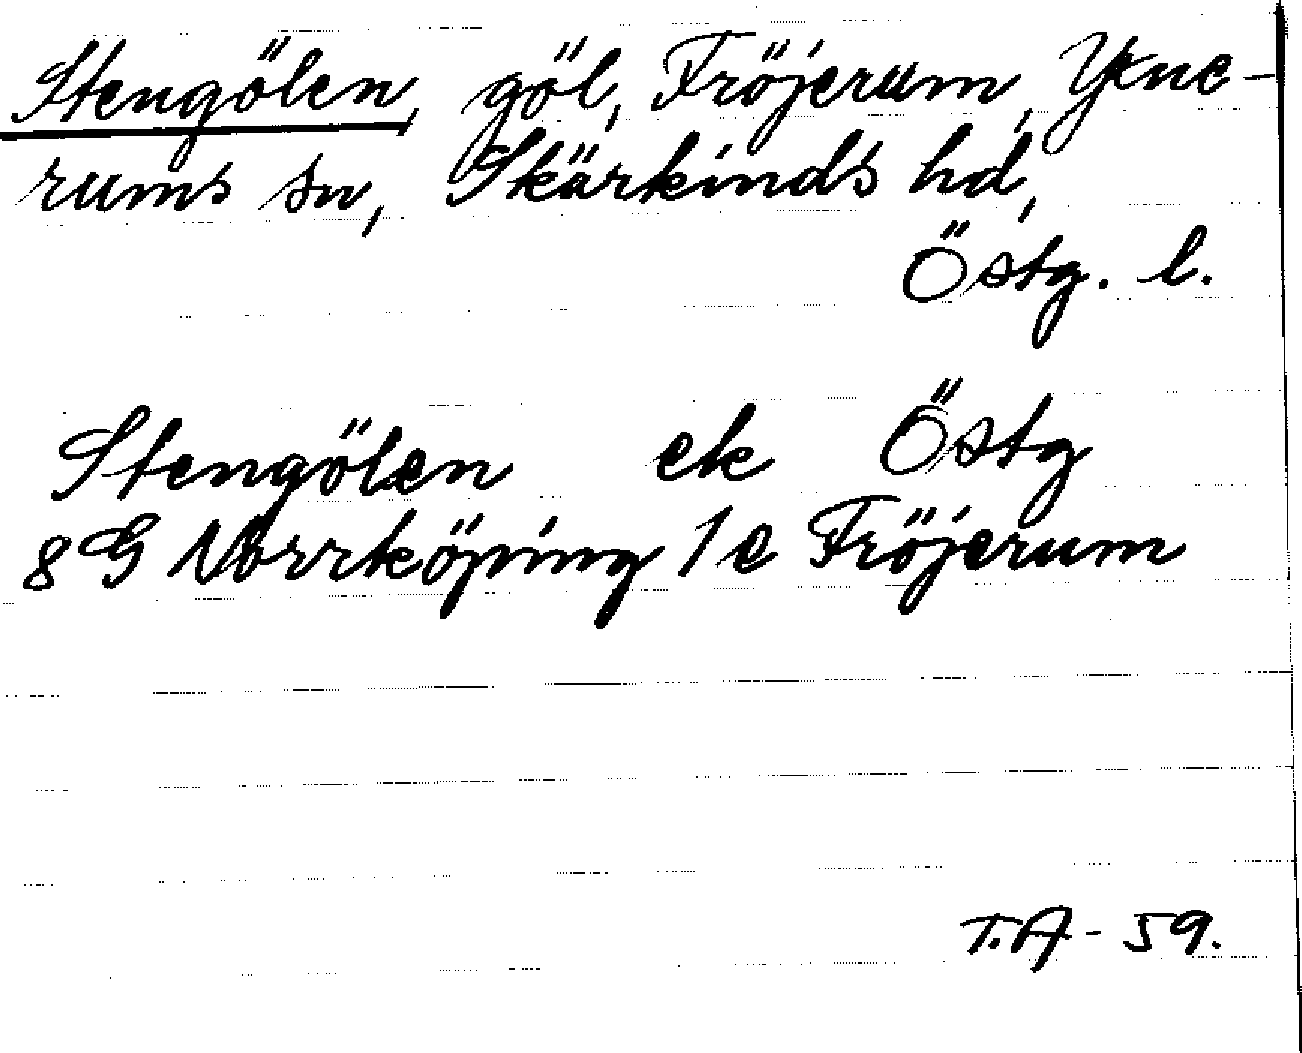 Stengölen, göl, Fröjerum, Yxne-
rums sn, Skärkinds hd,
Östg. l.
Stengölen ek Östg
8G Norrköping 1e Fröjerum
T.A - 59.